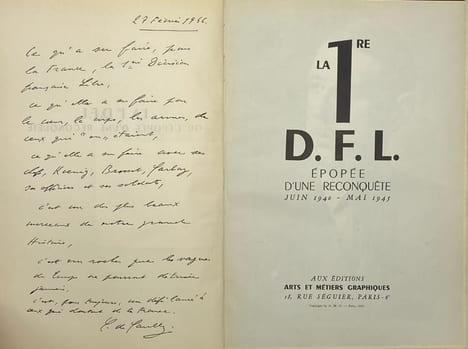 27 Février 1946.
Ce qu'a su faire, pour
la France, la 1ère Division
française Libre,
ce qu'elle a su faire par
le cœur, le corps, les armes, de
ceux qui "en" étaient,
ce qu'elle a su faire avec ses
chefs, Koenig, Brosset, Garbay,
ses officiers et ses soldats,
c'est un des plus beaux
morceaux de notre grande
Histoire,
c'est un rocher que les vagues
du temps ne pourront détruire
jamais,
c'est, pour toujours, un défi lancé à
ceux qui doutent de la France.
C. de Gaulle
LA 1RE
D. F. L.
ÉPOPÉE
D'UNE RECONQUÊTE
JUIN 1940 - MAI 1945
AUX ÉDITIONS
ARTS ET MÉTIERS GRAPHIQUES
18, RUE SÉGUIER, PARIS-6e